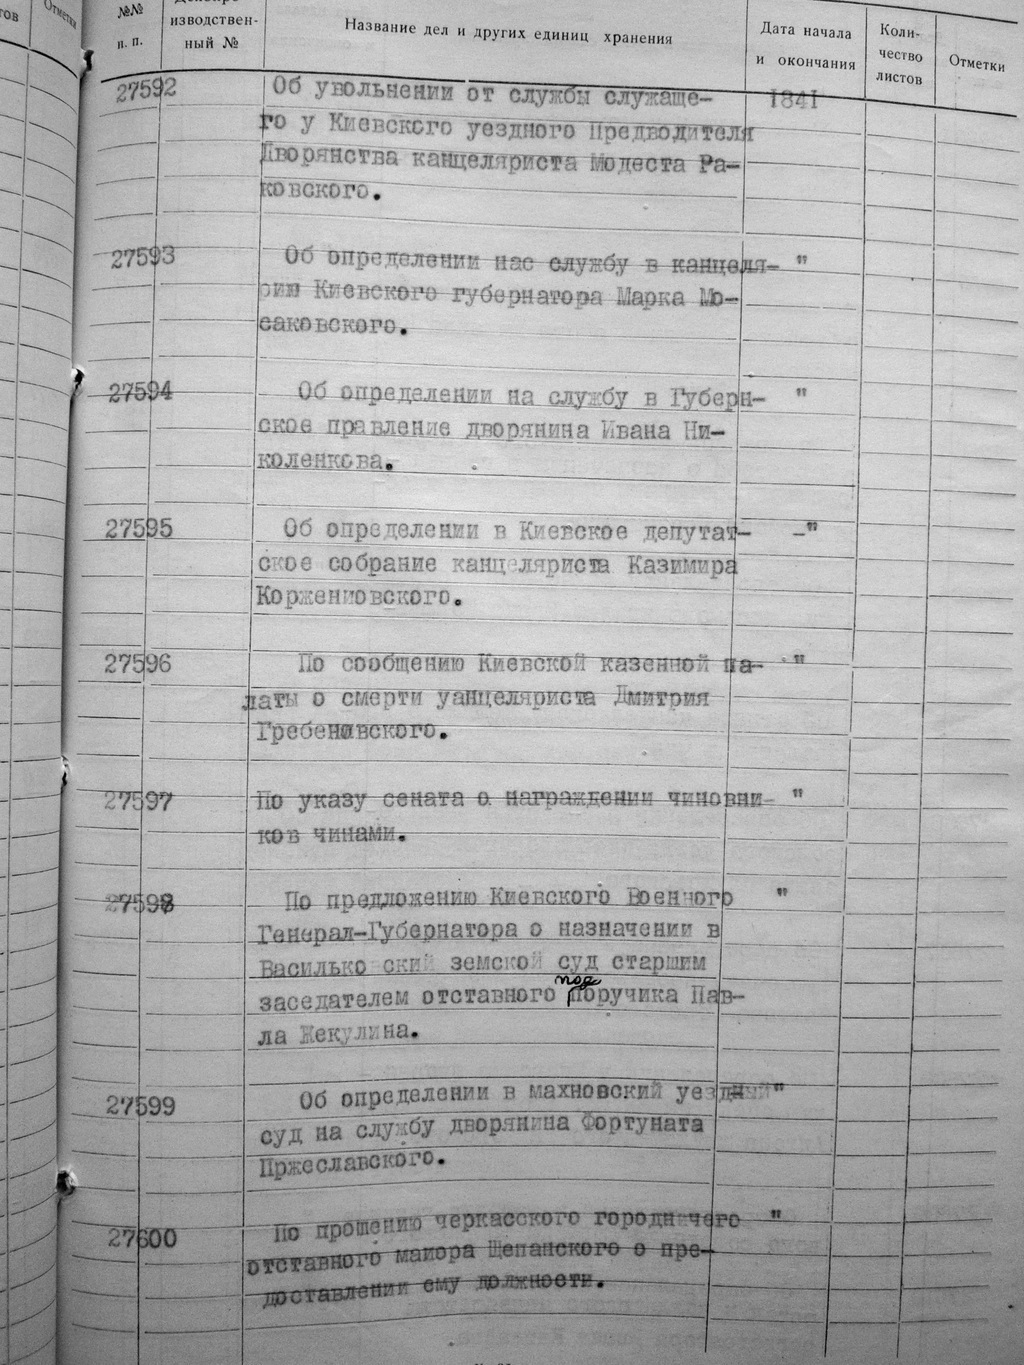 тов
Отметки
№№
п. п.
изводствен-
ный №
Название дел и других единиц хранения
Дата начала
и окончания
Коли-
чество
листов
Отметки
27592 Об увольнении от службы служаще- 1841
го у Киевского уездного Предводителя
Дворянства канцеляриста Модеста Ра-
ковского.
27593 Об определении нас службу в канцеля- "
рию Киевского губернатора Марка Мо-
саковского.
27594 Об определении на службу в Губерн- "
ское правление дворянина Ивана Ни-
коленкова.
27595 Об определении в Киевское депутат- -"
ское собрание канцеляриста Казимира
Корженковского.
27596 По сообщению Киевской казенной па- "
латы о смерти уанцеляриста Дмитрия
Гребеновского.
27597 По указу сената о награждении чиновни- "
ков чинами.
27598 По предложению Киевского Военного "
Генерал-Губернатора о назначении в
Василько ский земской суд старшим
под
заседателем отставного поручика Пав-
ла Жекулина.
27599 Об определении в махновский уездный "
суд на службу дворянина Фортуната
Пржеславского.
27600 По прошению черкасского городничего "
отставного маиора Щепанского о пре-
доставлении ему должности.